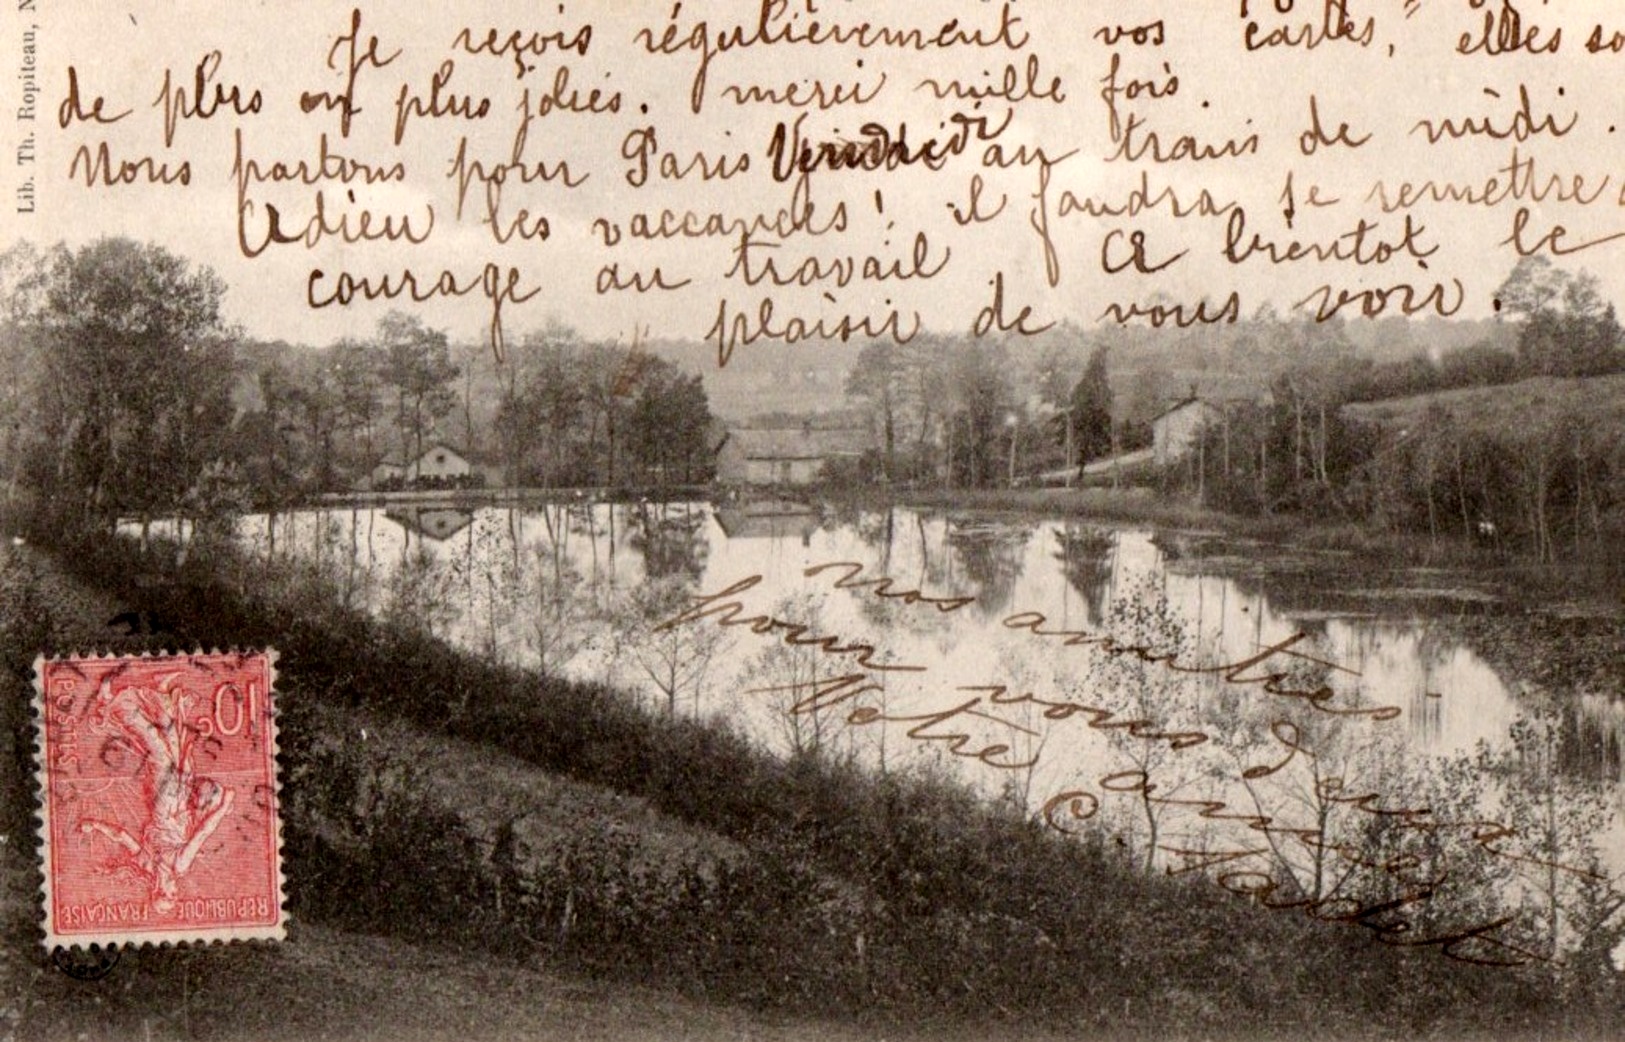 Lib. Th. Ropiteau, N
Je reçois régulièrement vos cartes, elles so
de plus en plus jolies. merci mille fois.
Nous partons pour Paris Vendredi au train de midi.
Adieu les vaccances! il faudra se remettre
courage au travail. A bientot le
plaisir de vous voir.
nos amitiés
pour vous deux
Votre amie
C. Tardet
10c
POSTES
REPUBLIQUE FRANÇAISE